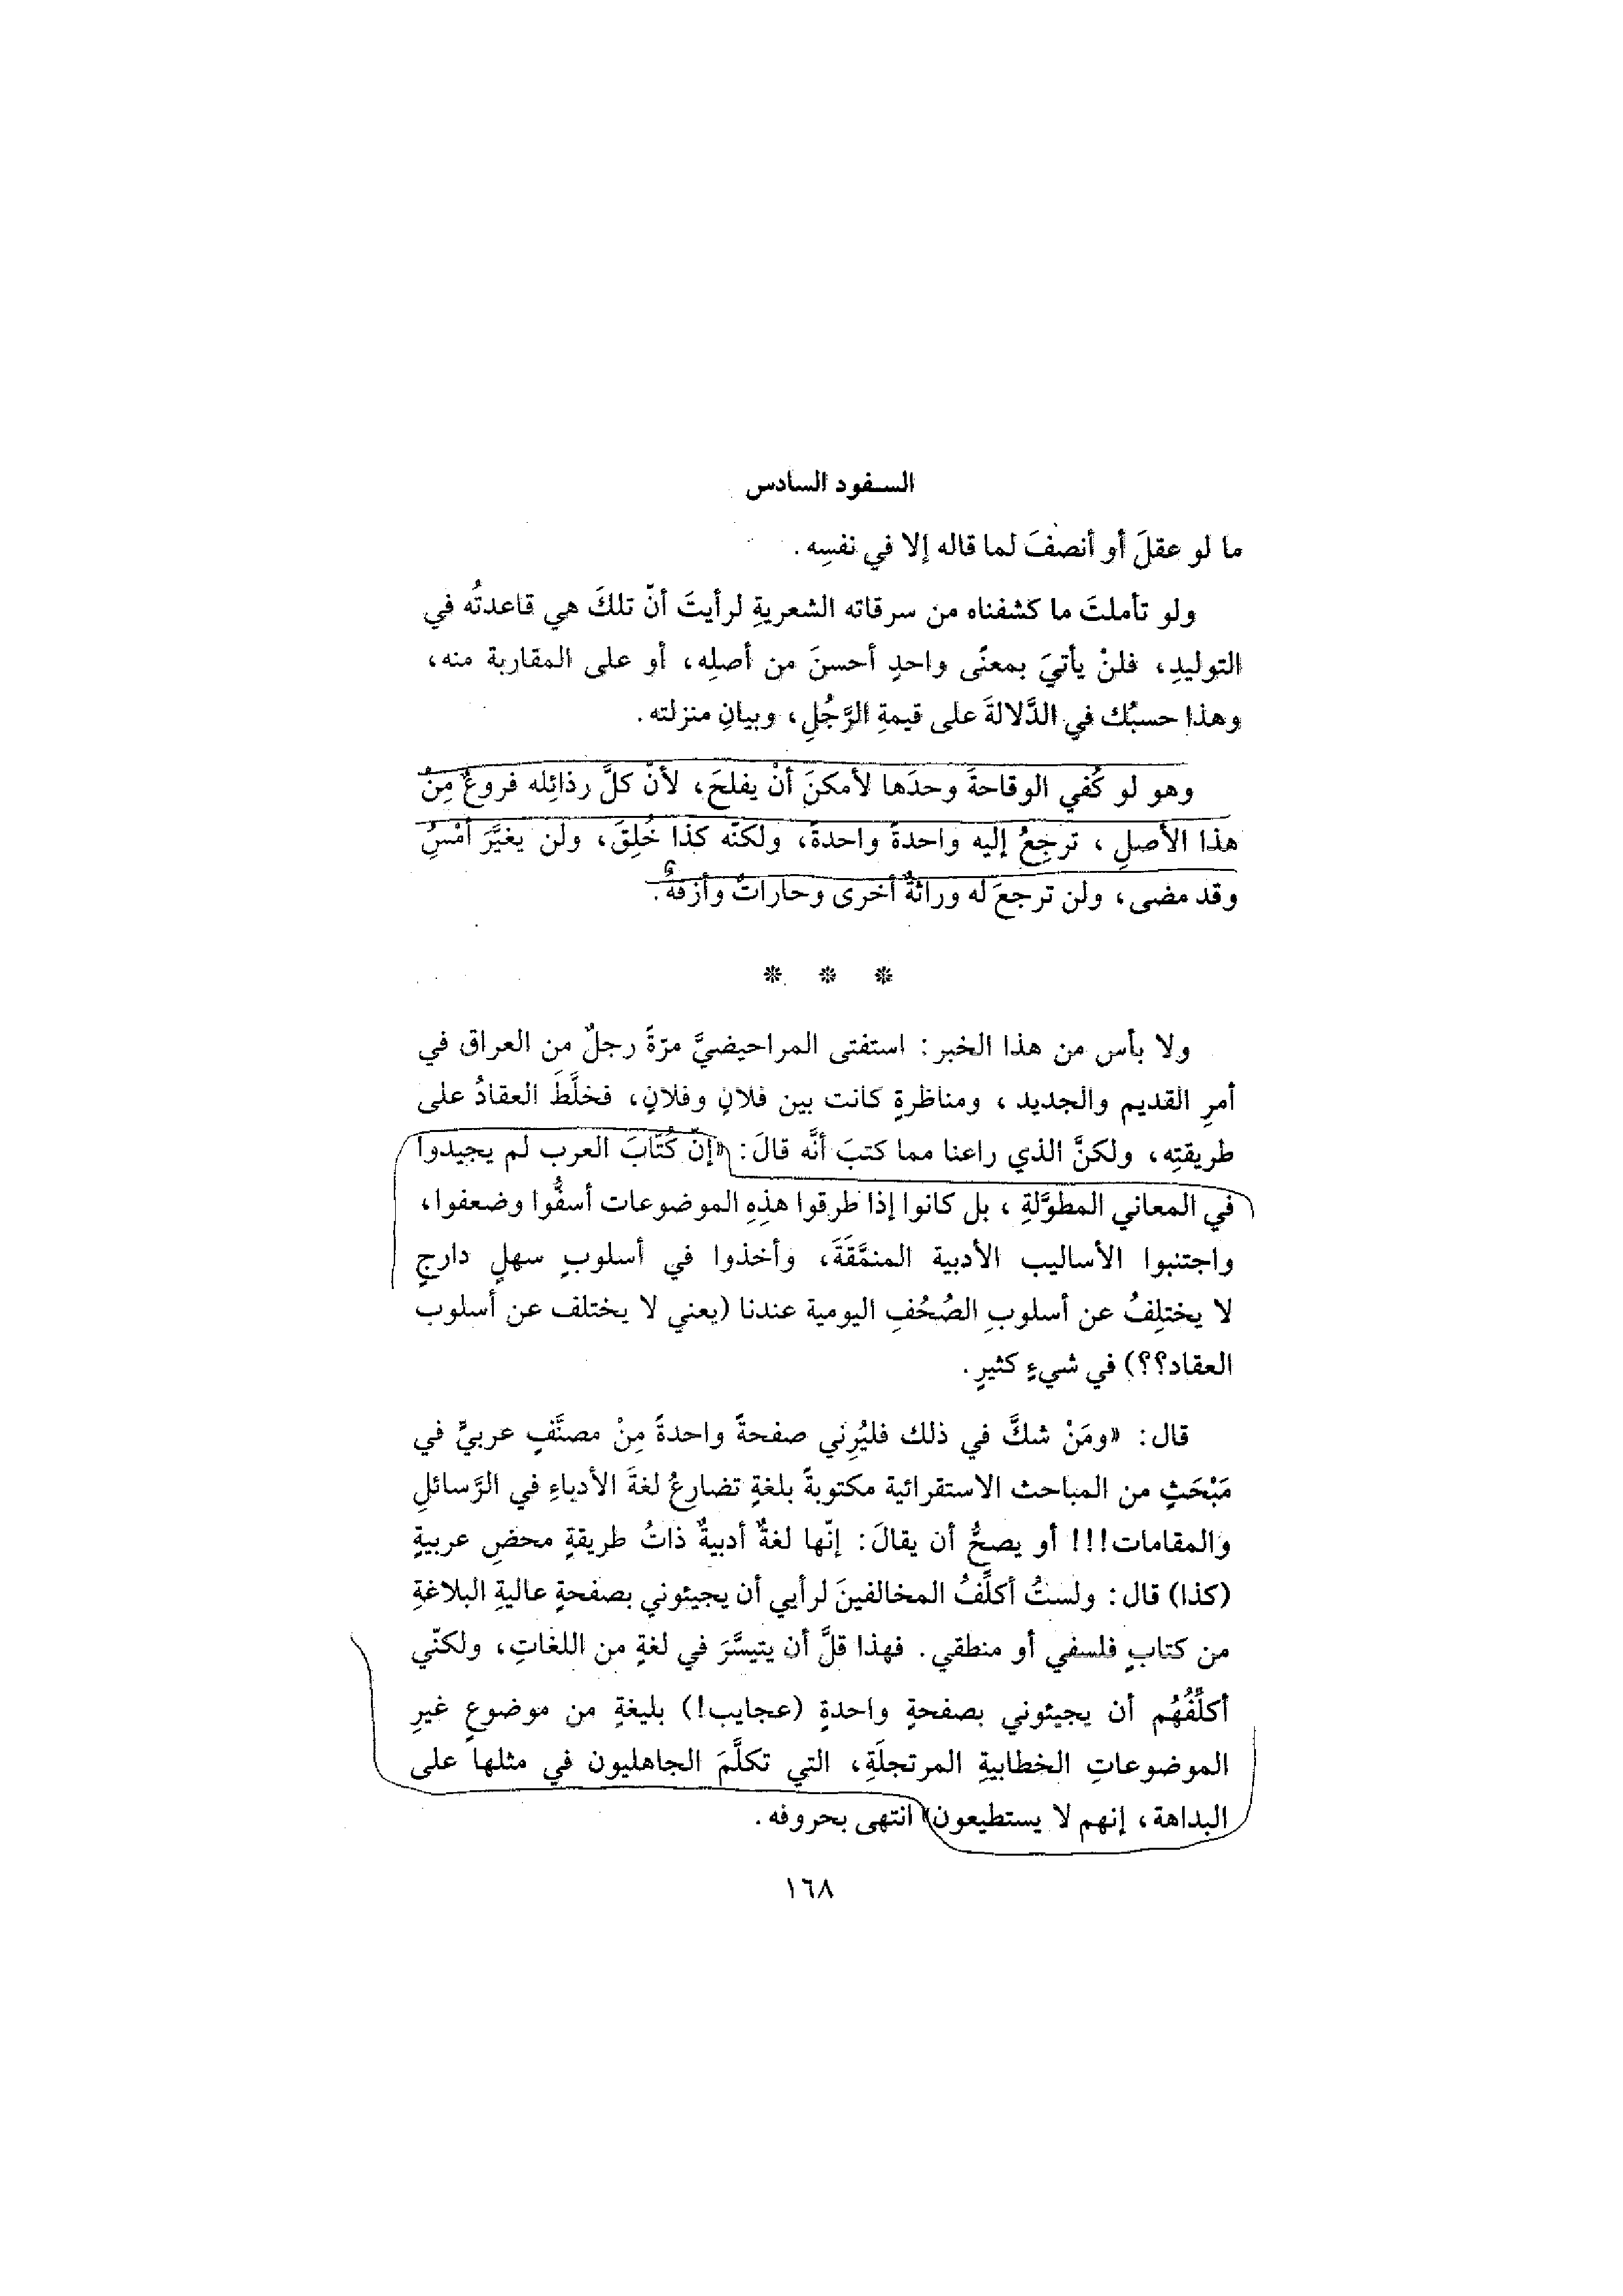 السفود السادس
ما لو عقلَ أو أنصفَ لما قاله إلا في نفسِه .
ولو تأملتَ ما كشفناه من سرقاته الشعريةِ لرأيتَ أنّ تلكَ هي قاعدتُه في
التوليدِ، فلنْ يأتيَ بمعنًى واحدٍ أحسنَ من أصلِه، أو على المقاربة منه،
وهذا حسبُك في الدَّلالةَ على قيمةِ الرَّجُلِ، وبيانِ منزلته.
وهو لو كُفي الوقاحةَ وحدَها لأمكنَ أنْ يفلحَ، لأنّ كلَّ رذائِله فروعٌ مِنْ
هذا الأصلِ ، ترجِعُ إليه واحدةً واحدةً، ولكنّه كذا خُلِقَ، ولن يغيَّرَ أمْسُِ
وقد مضى، ولن ترجعَ له وراثةٌ أخرى وحاراتٌ وأزقةٌ.
* * *
ولا بأس من هذا الخبر: استفتى المراحيضيَّ مرّةً رجلٌ من العراق في
أمرِ القديم والجديد ، ومناظرةٍ كانت بين فلانٍ وفلانٍ، فخلَّطَ العقادُ على
طريقتِه، ولكنَّ الذي راعنا مما كتبَ أنَّه قالَ: «إنّ كُتَّابَ العرب لم يجيدوا
في المعاني المطوَّلةِ ، بل كانوا إذا طرقوا هذِهِ الموضوعات أسفُّوا وضعفوا،
واجتنبوا الأساليب الأدبية المنمَّقَةَ، وأخذوا في أسلوبٍ سهلٍ دارجٍ
لا يختلِفُ عن أسلوبِ الصُحُفِ اليومية عندنا (يعني لا يختلف عن أسلوب
العقاد؟؟) في شيءٍ كثيرٍ .
قال: «ومَنْ شكَّ في ذلك فليُرِني صفحةً واحدةً مِنْ مصنَّفٍ عربيٍّ في
مَبْحَثٍ من المباحث الاستقرائية مكتوبةً بلغةٍ تضارعُ لغةَ الأدباءِ في الرَّسائلِ
والمقامات!!! أو يصحُّ أن يقالَ: إنّها لغةٌ أدبيةٌ ذاتُ طريقةٍ محضٍ عربيةٍ
(كذا) قال: ولستُ أكلِّفُ المخالفينَ لرأيي أن يجيئوني بصفحةٍ عاليةِ البلاغةِ
من كتابٍ فلسفي أو منطقي. فهذا قلَّ أن يتيسَّرَ في لغةٍ من اللغاتِ، ولكنّي
أكلِّفُهُم أن يجيئوني بصفحةٍ واحدةٍ (عجايب!) بليغةٍ من موضوعٍ غيرِ
الموضوعاتِ الخطابيةِ المرتجلَةِ، التي تكلَّمَ الجاهليون في مثلها على
البداهة، إنهم لا يستطيعون» انتهى بحروفه.
١٦٨